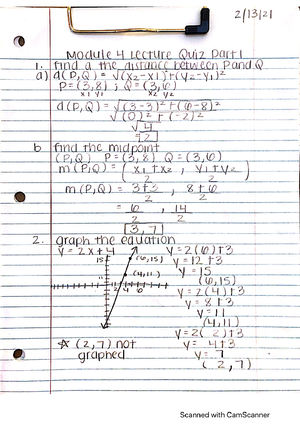 2/13/21
Module 4 Lecture Quiz Part 1
1. find a the distance between P and Q
a) d(P,Q) = √(x2-x1)²+(y2-y1)²
P=(3,8) ; Q=(3,6)
x1 y1 x2 y2
d(P,Q) = √(3-3)²+(6-8)²
√(0)²+(-2)²
√4
2
b find the midpoint
(P,Q) P=(3,8) Q=(3,6)
m(P,Q) = (x1+x2 , y1+y2)
2 2
m(P,Q) = 3+3 , 8+6
2 2
= 6 , 14
2 2
[3,7]
2. graph the equation
y = 2x+4 y=2(6)+3
15 (6,15) y=12+3
y=15
(6,15)
(4,11) y=2(4)+3
y=8+3
2 4 6 y=11
(4,11)
y=2(2)+3
☆ (2,7) not y=4+3
graphed y=7
(2,7)
Scanned with CamScanner